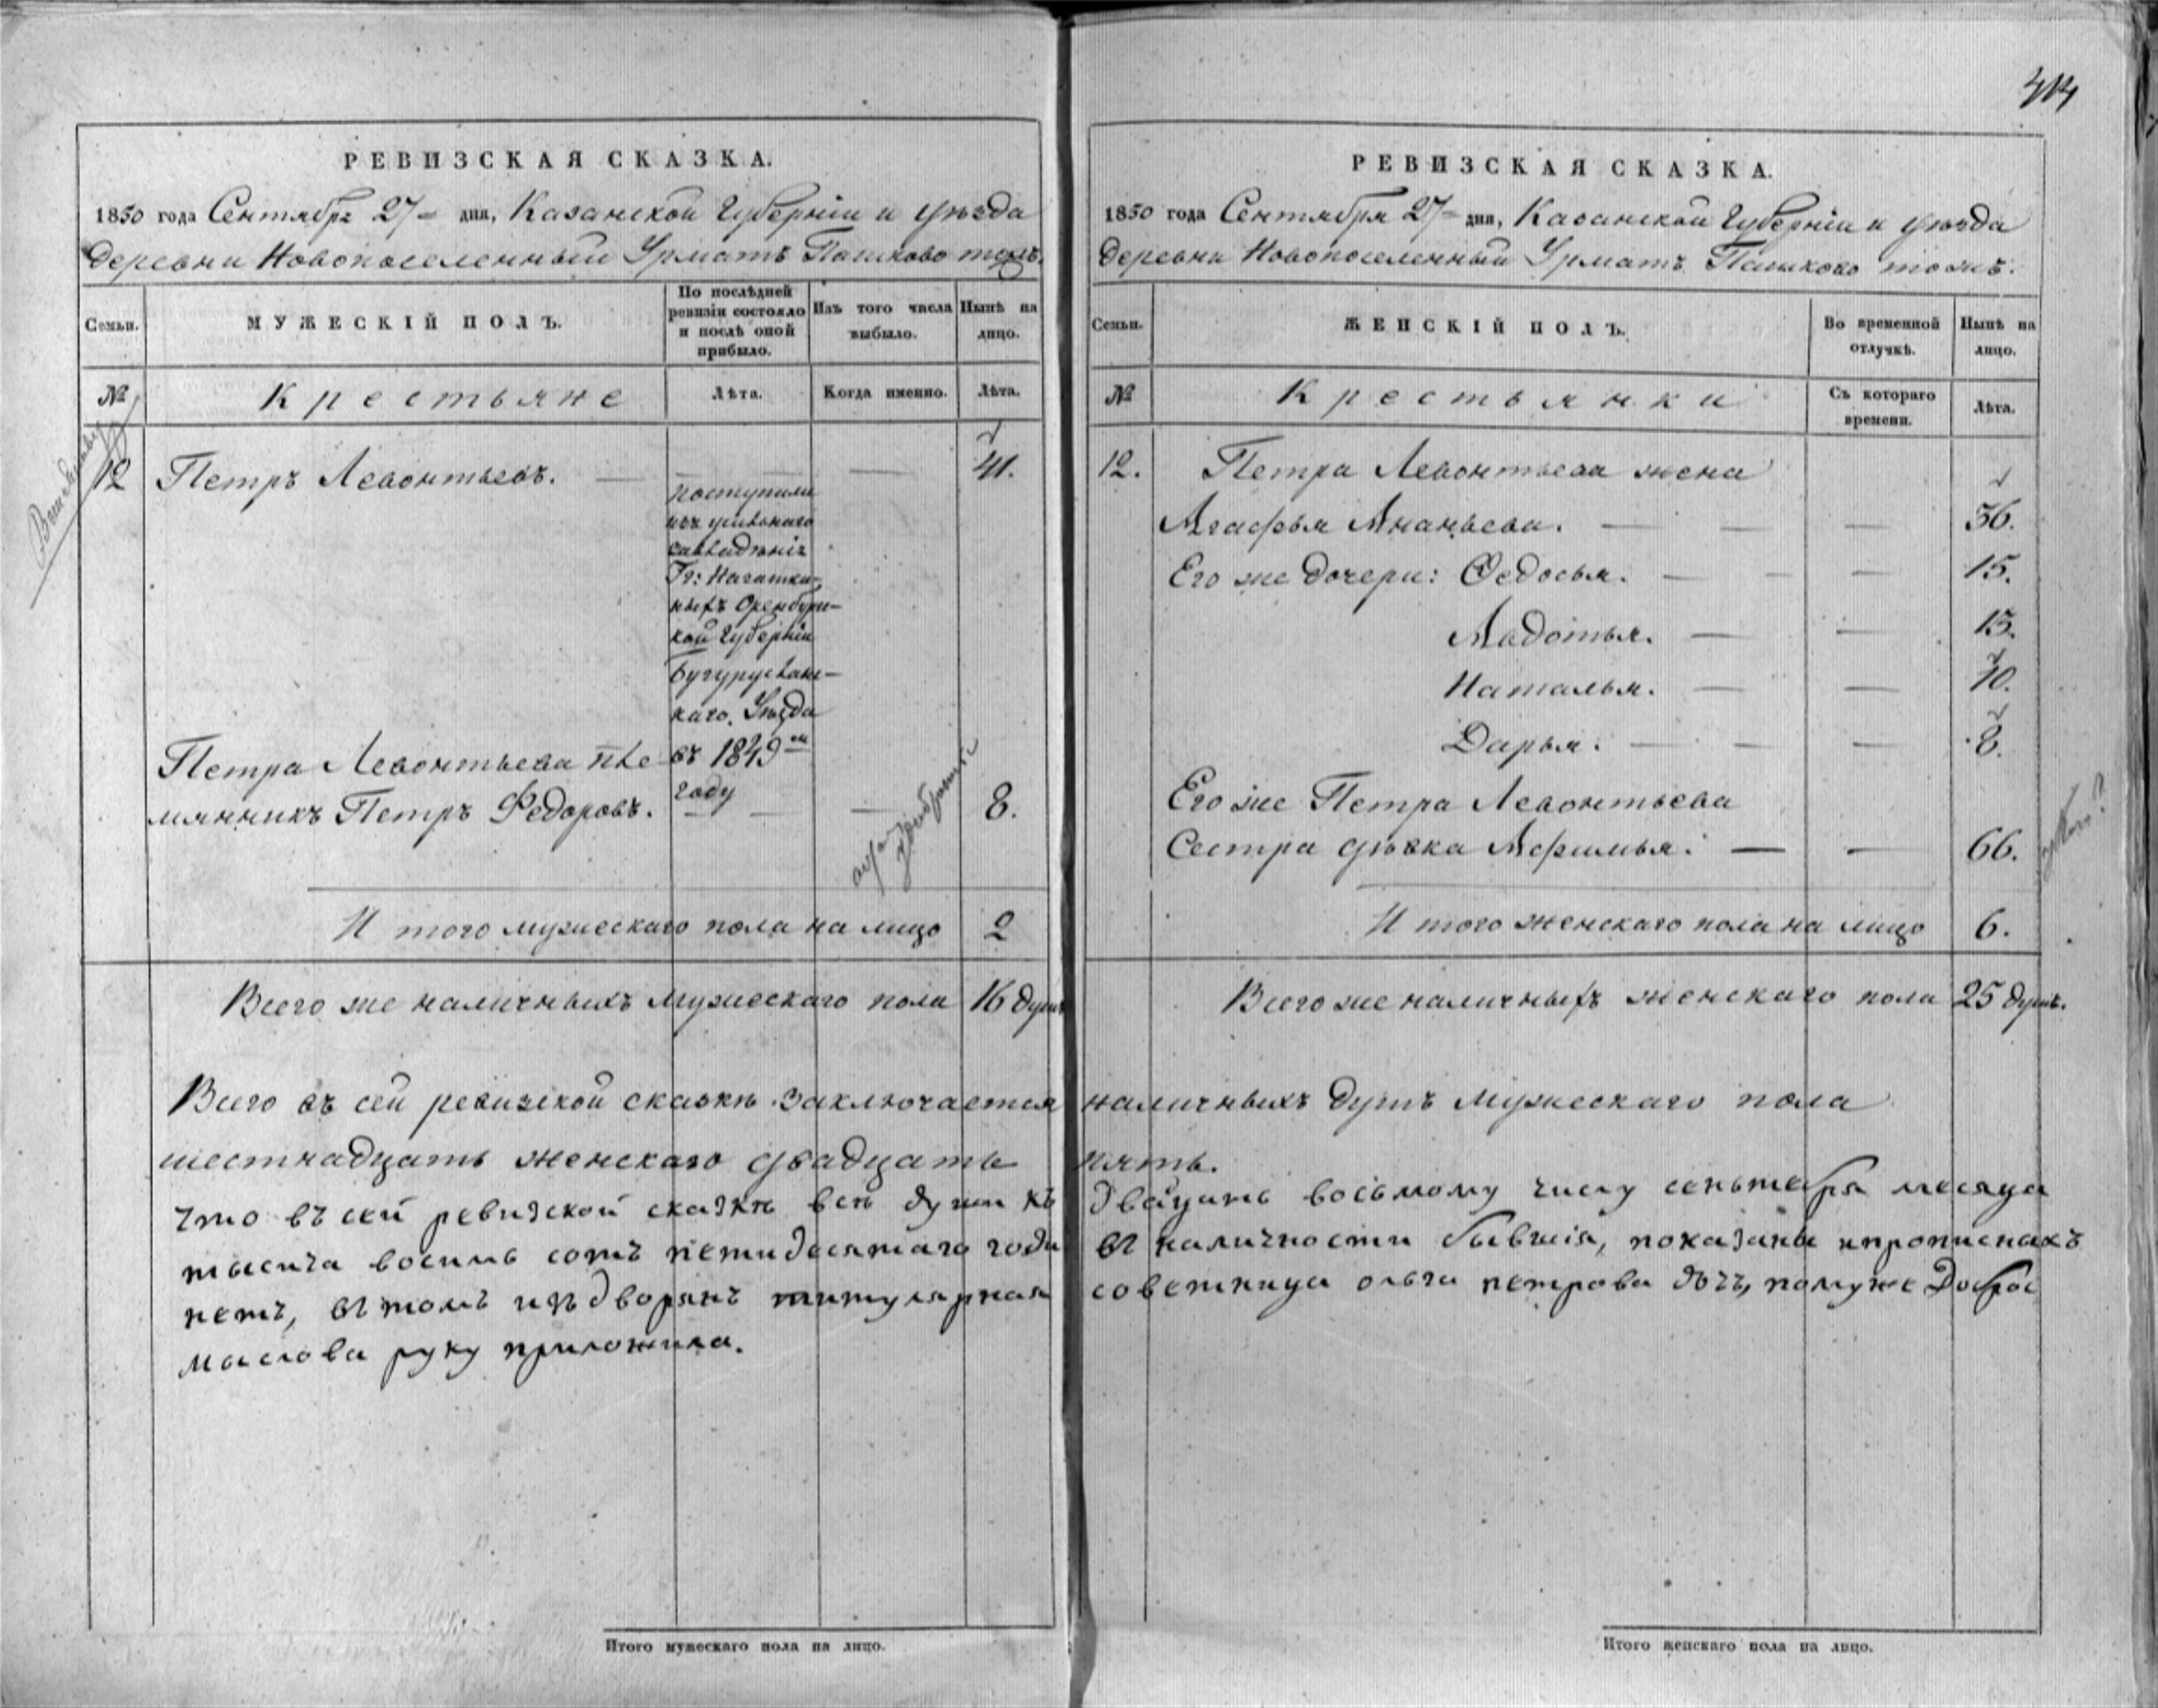 414
РЕВИЗСКАЯ СКАЗКА.
1850 года Сентября 27 дня, Казанской Губерніи и уѣзда
деревни Новопоселенный Урматъ Пашково тожъ.
Семьи.
МУЖЕСКІЙ ПОЛЪ.
По послѣдней ревизіи состояло и послѣ оной прибыло.
Изъ того числа выбыло.
Нынѣ на лицо.
№
Крестьяне
Лѣта.
Когда именно.
Лѣта.
12 Петръ Левонтьевъ. — — — 41.
поступили
изъ
Гг: Нагаткиныхъ Оренбургской Губерніи
Бугурусланскаго Уѣзда
въ 1849 м
году
Петра Левонтьева племянникъ Петръ Федоровъ. — — — 8.
И того мужескаго пола на лицо 2
Всего же наличныхъ мужескаго пола 16 душъ
РЕВИЗСКАЯ СКАЗКА.
1850 года Сентября 27 дня, Казанской Губерніи и уѣзда
деревни Новопоселенный Урматъ Пашково тожъ.
Семьи.
ЖЕНСКІЙ ПОЛЪ.
Во временной отлучкѣ.
Нынѣ на лицо.
№
Крестьянки
Съ котораго времени.
Лѣта.
12. Петра Левонтьева жена
Агафья Ананьева. — — — 36.
Его же дочери: Федосья. — — — 15.
Авдотья. — — 13.
Наталья. — — 10.
Дарья. — — — 8.
Его же Петра Левонтьева
Сестра дѣвка Афимья. — — 66.
И того женскаго пола на лицо 6.
Всего же наличныхъ женскаго пола 25 душъ.
Всего въ сей ревизской сказкѣ заключается наличныхъ душъ мужескаго пола
шестнадцать женскаго двадцать пять.
что въ сей ревизской сказкѣ всѣ души къ двацать восьмому числу сеньтебря месяца
тысеча восимь сотъ петидесятаго года въ наличности бывшія, показаны ипрописныхъ
нетъ, въ томъ изъ дворянъ титулярная советница ольга петрова дочь, помуже Добро
мыслова руку приложила.
Итого мужескаго пола на лицо.
Итого женскаго пола на лицо.